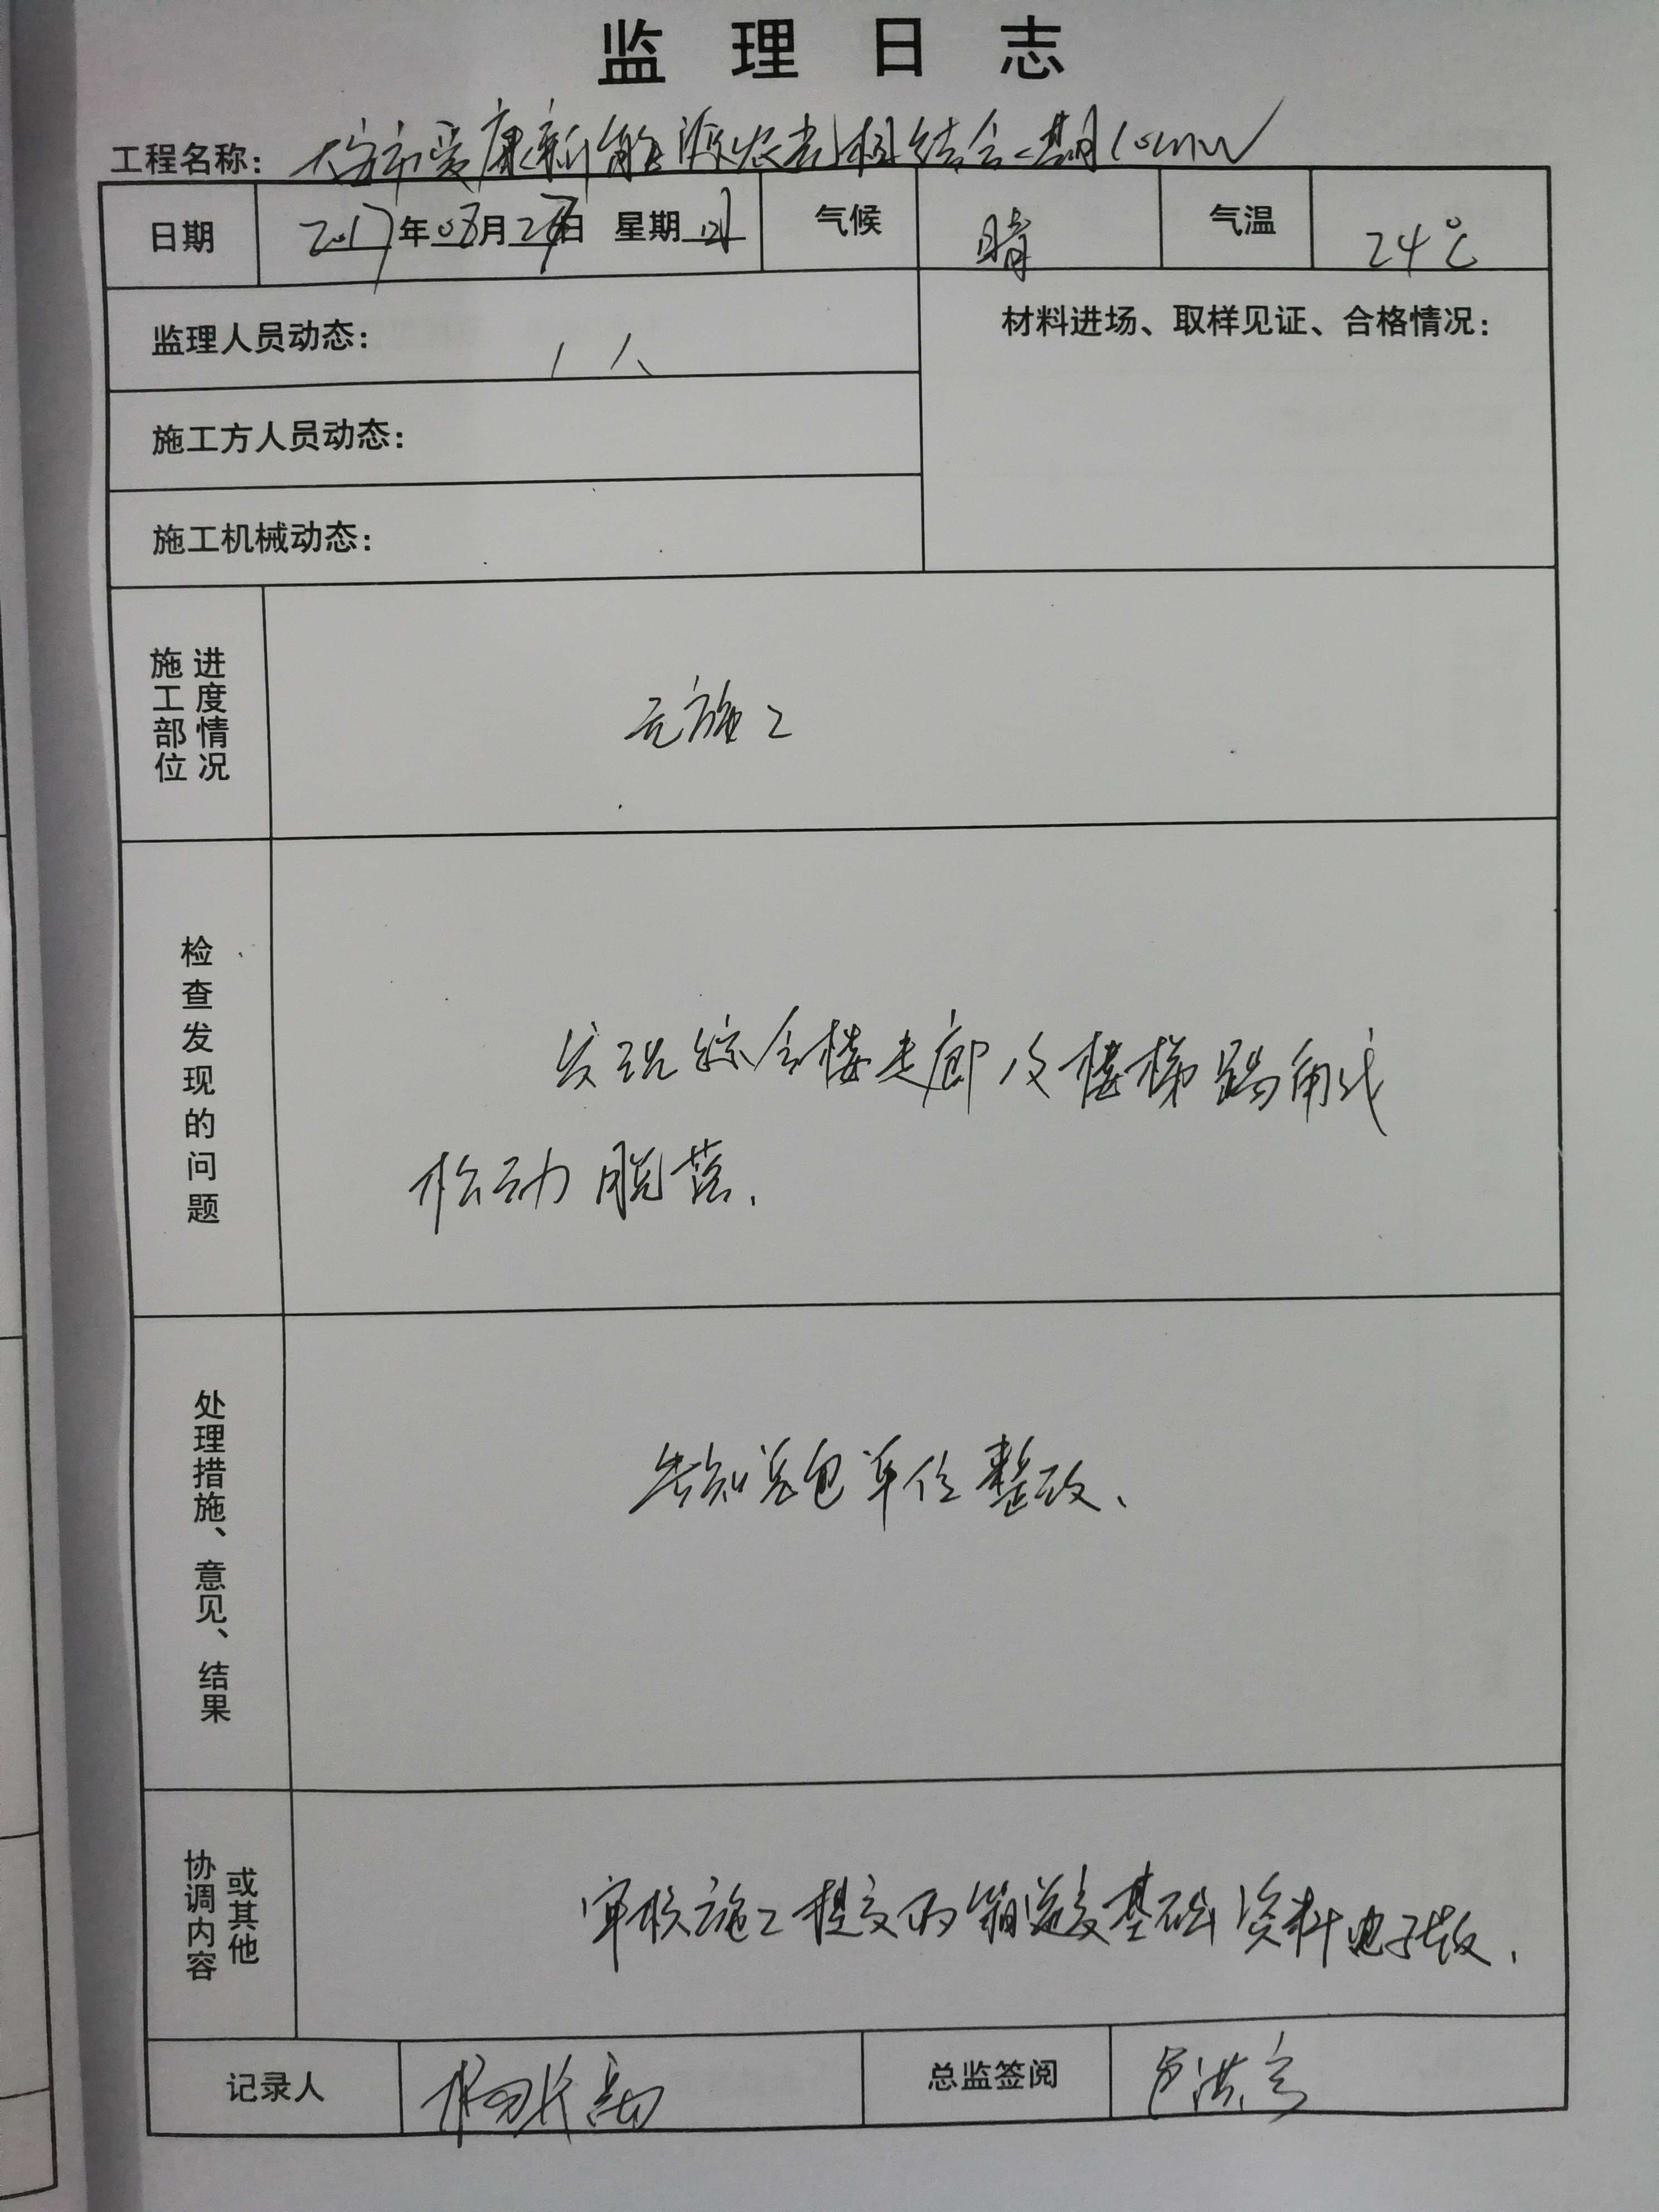 监理日志
工程名称：大安市爱康新能源农光相结合一期10MW
日期 2017年08月24日 星期四 气候 晴 气温 24℃
监理人员动态： 1人
材料进场、取样见证、合格情况：
施工方人员动态：
施工机械动态：
施工部位进度情况 无施工
检查发现的问题 发现综合楼走廊及楼梯踢角线
松动脱落.
处理措施、意见、结果 告知总包单位整改.
协调内容或其他 审核施工提交的箱逆变基础资料电子版.
记录人 总监签阅